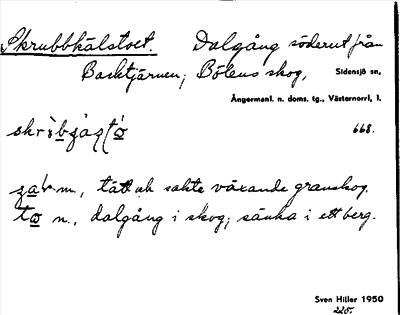 Skrubbkälstoet. Dalgång söderut från
Backtjärnen; Bölens skog, Sidensjö sn,
Ångermanl. n. doms. tg., Västernorrl. l.
668.
m., tätt och sakta växande granskog.
n., dalgång i skog; sänka i ett berg.
Sven Hiller 1950
225.